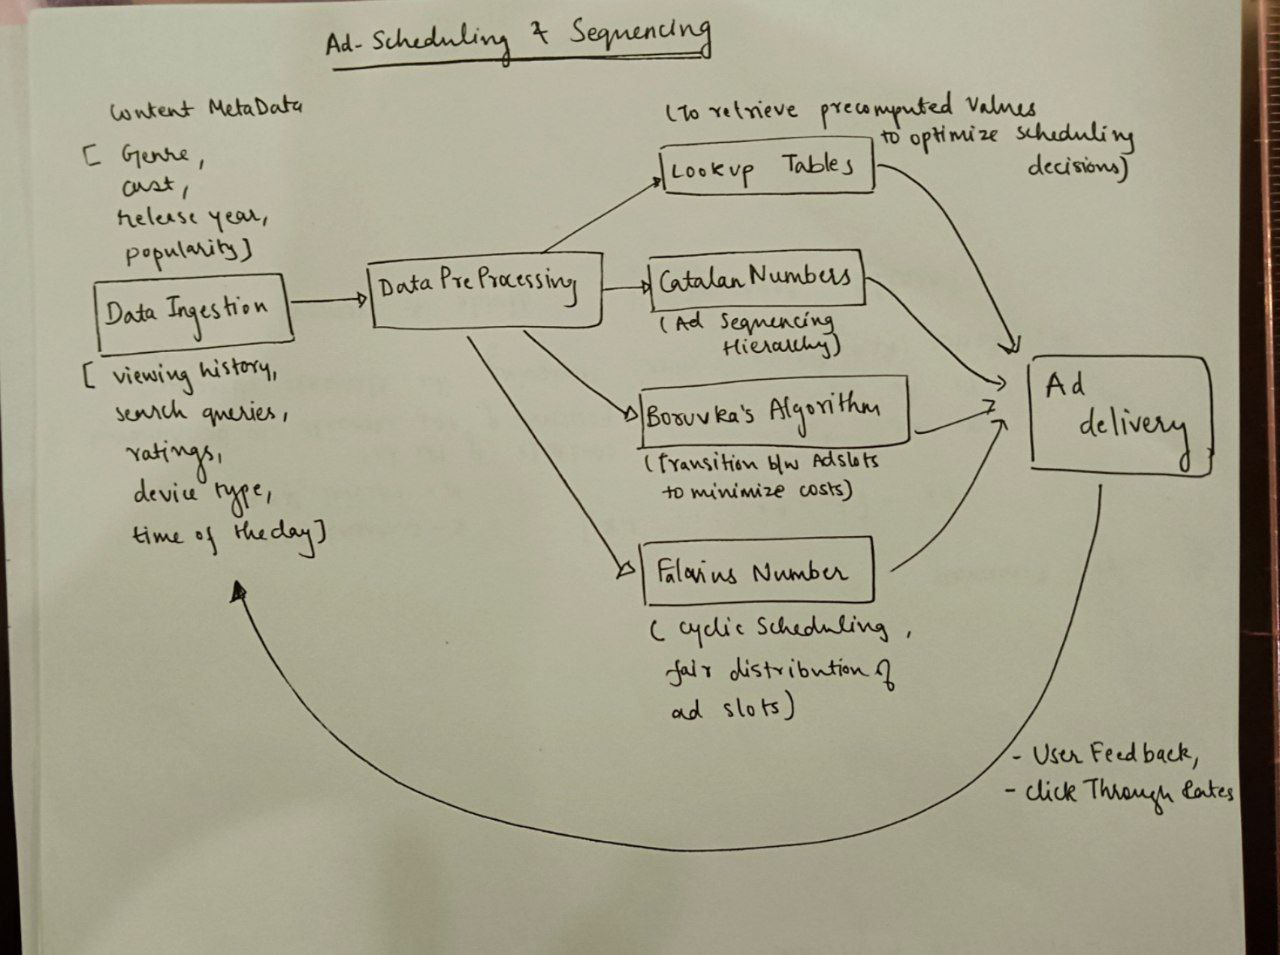 Ad-Scheduling & Sequencing
Content MetaData
[ Genre,
cast,
release year,
popularity]
Data Ingestion
[ viewing history,
search queries,
ratings,
device type,
time of the day]
Data PreProcessing
(To retrieve precomputed values
to optimize scheduling
decisions)
Lookup Tables
Catalan Numbers
(Ad Sequencing
Hierarchy)
Boruvka's Algorithm
(Transition b/w Adslots
to minimize costs)
Falavius Number
( cyclic scheduling,
fair distribution of
ad slots)
Ad
delivery
- User Feedback,
- Click Through Rates